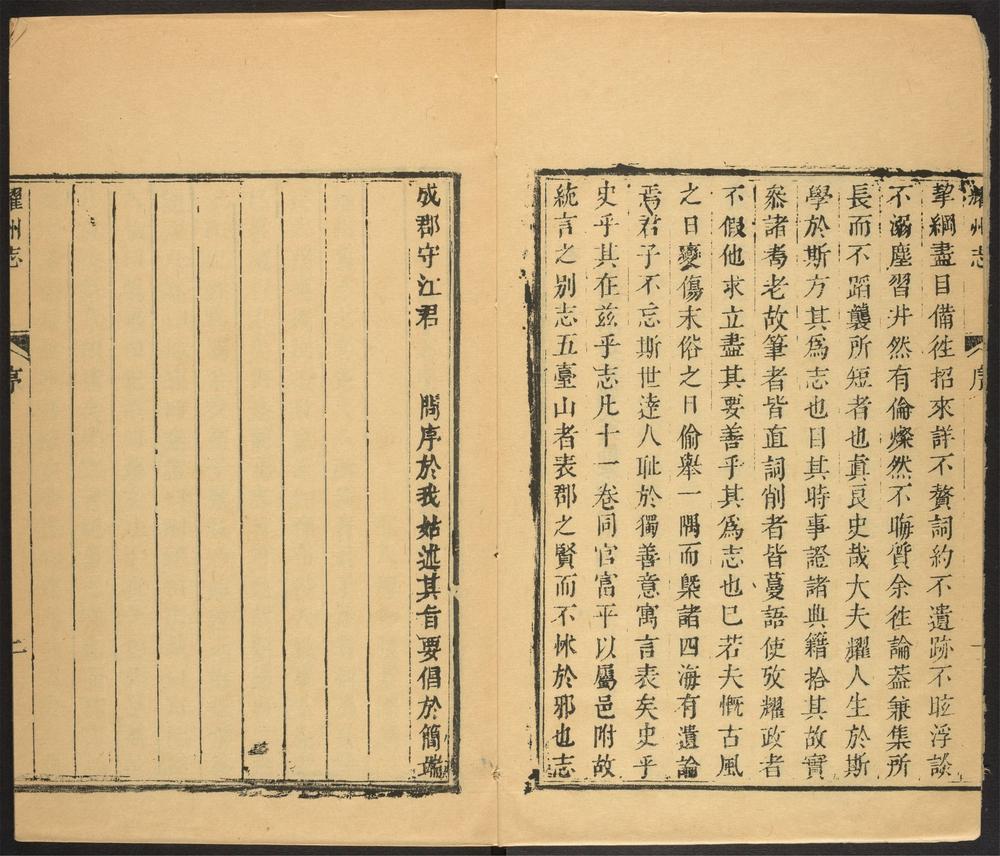 耀州志 序
挈綱盡目備徃招來詳不贅詞約不遺跡不眩浮談
不溺塵習井然有倫燦然不晦質余徃論葢兼集所
長而不蹈襲所短者也真良史哉大夫耀人生於斯
學於斯方其爲志也目其時事證諸典籍拾其故實
叅諸耉老故筆者皆直詞削者皆蔓語使攷耀政者
不假他求立盡其要善乎其爲志也已若夫慨古風
之日變傷末俗之日偷舉一隅而槩諸四海有遺論
焉君子不忘斯世達人耻於獨善意寓言表矣史乎
史乎其在兹乎志凡十一卷同官富平以屬邑附故
統言之别志五臺山者表郡之賢而不怵於邪也志
成郡守江君 問序於我姑述其旨要倡於簡端
耀州志 序 二